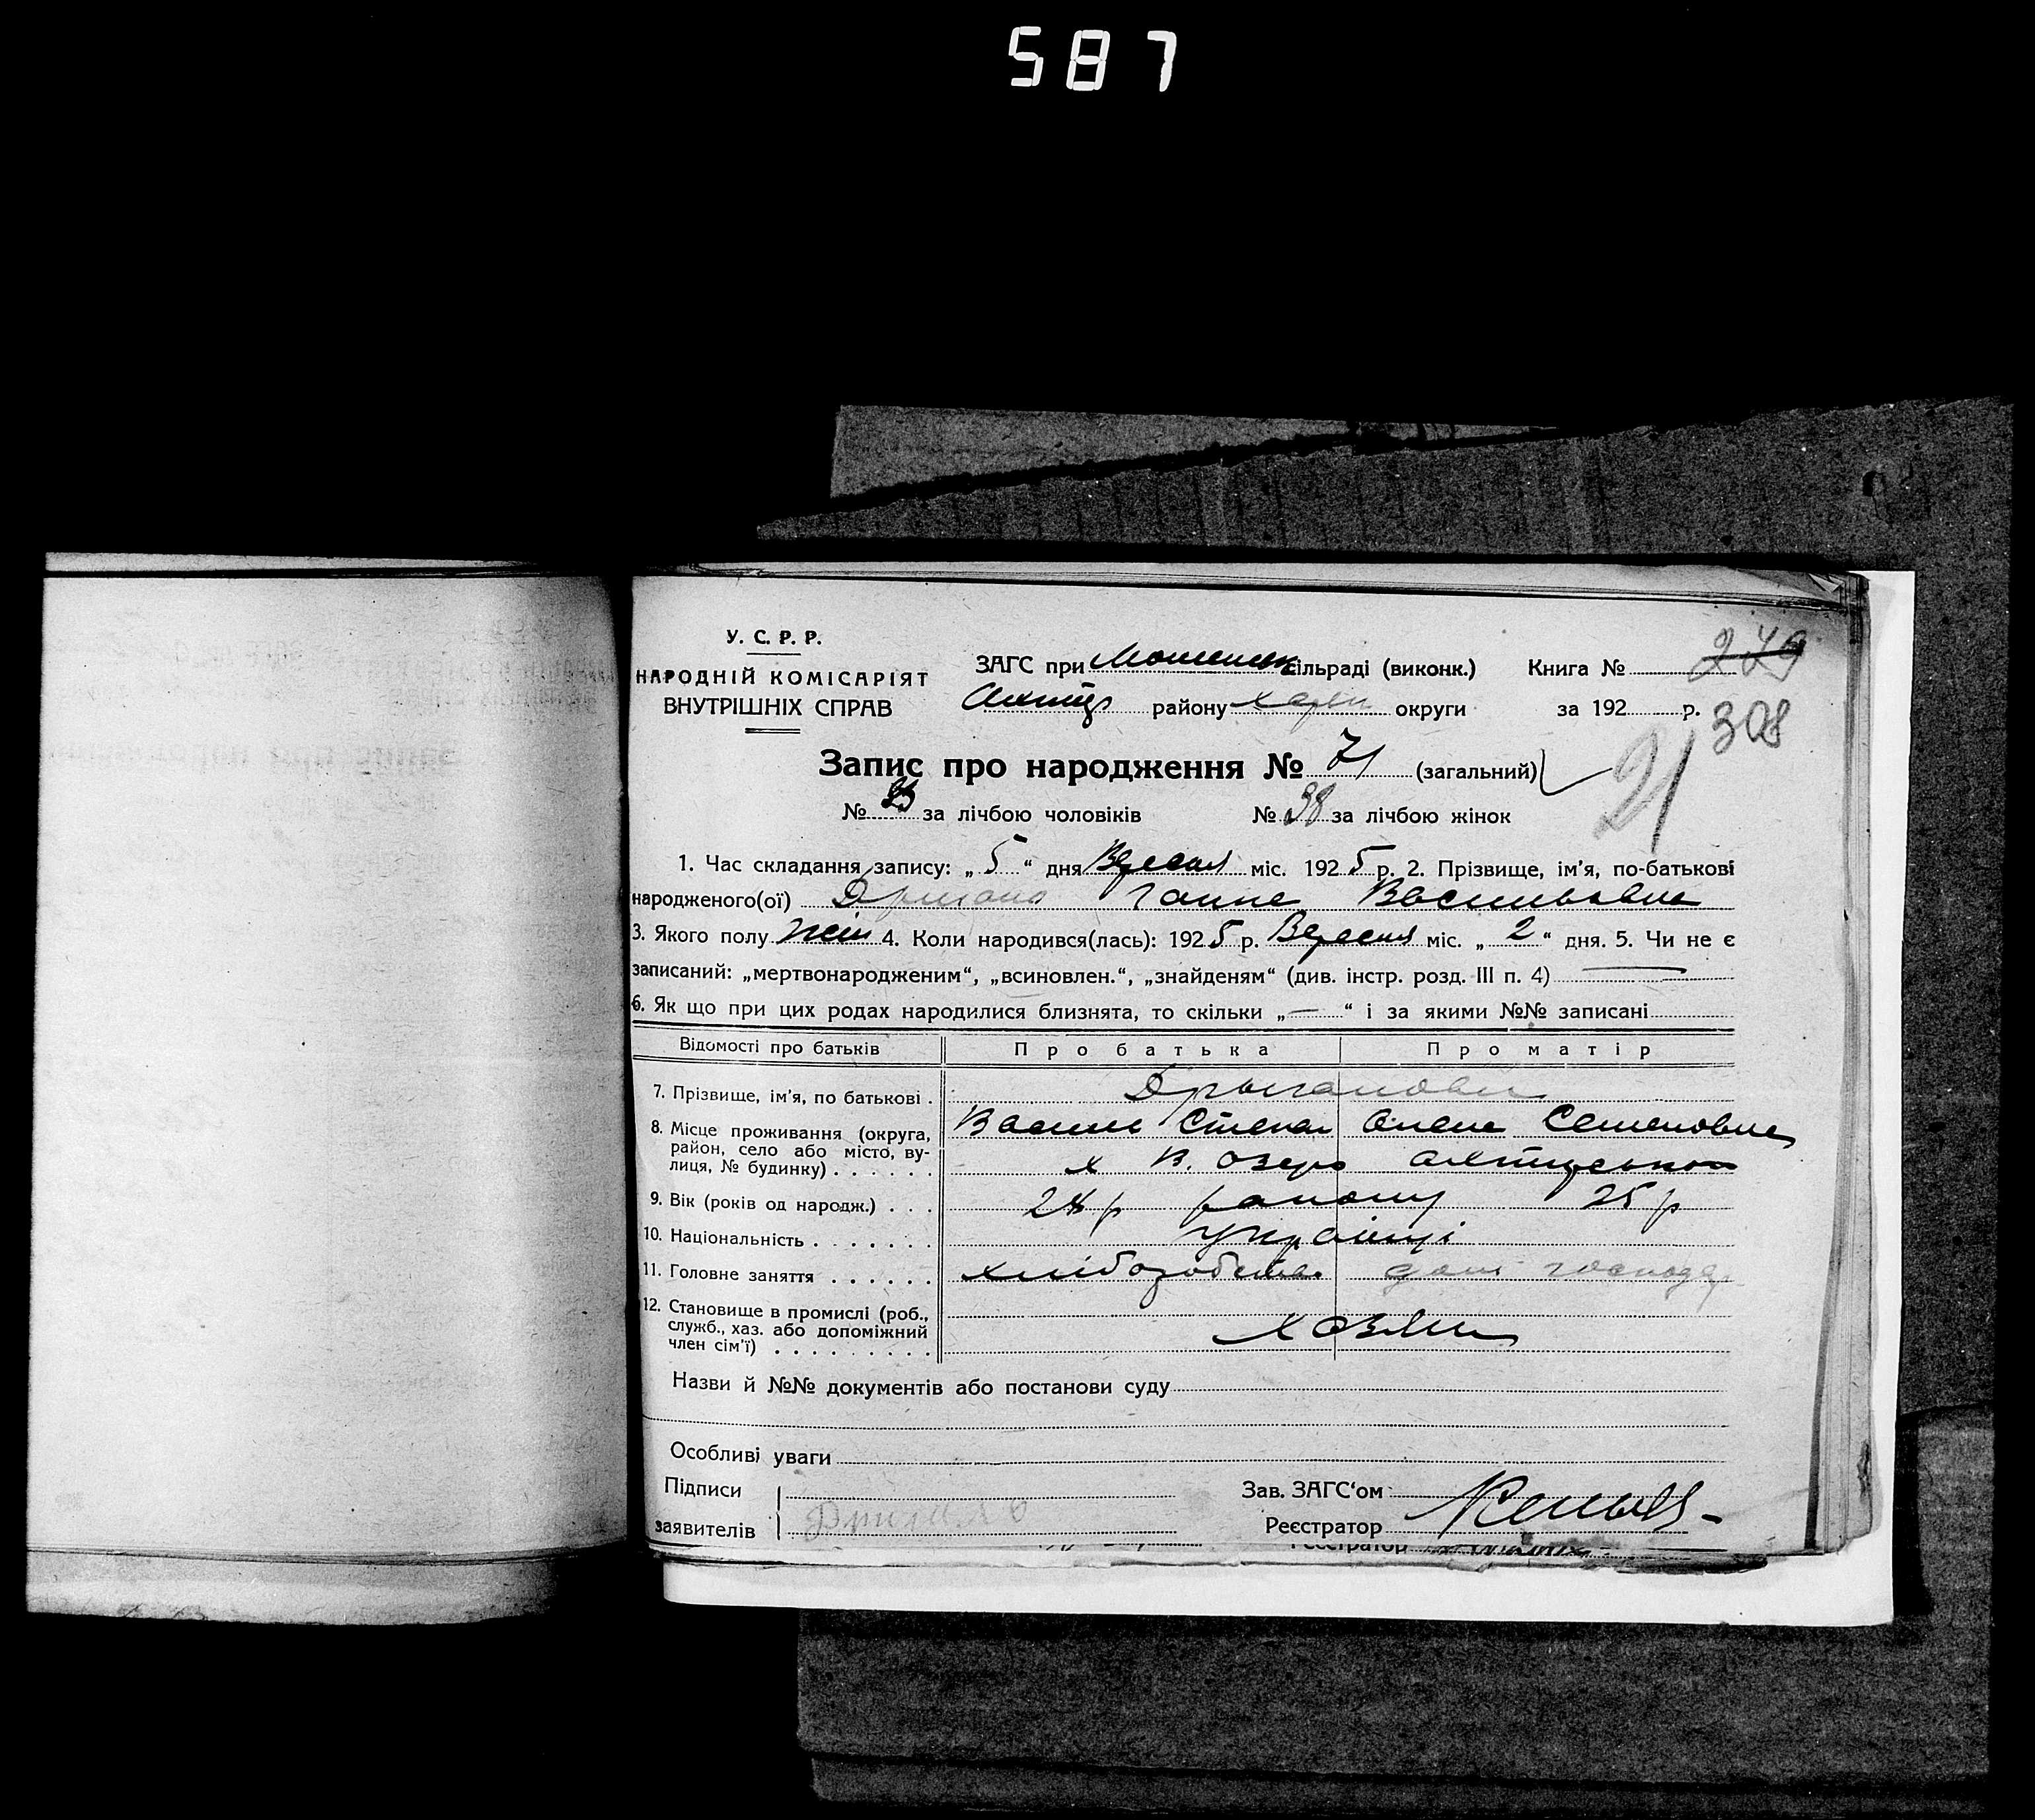 587
У. С. Р. Р.
НАРОДНІЙ КОМІСАРІЯТ
ВНУТРІШНІХ СПРАВ
ЗАГС при сільраді (виконк.) Книга № 279
району Харьк округи за 192 р. 308
Запис про народження № 71 (загальний) 21
№ 33 за лічбою чоловіків № 38 за лічбою жінок
1. Час складання запису: „ 5 “ дня Вересня міс. 192 5 р. 2. Прізвище, ім’я, по-батькові
народженого(ої) Ганна Васильовна
3. Якого полу жін 4. Коли народився(лась): 192 5 р. Вересня міс. „ 2 “ дня. 5. Чи не є
записаний: „мертвонародженим“, „всиновлен.“, „знайденям“ (див. інстр. розд. III п. 4) —
6. Як що при цих родах народилися близнята, то скільки „ — “ і за якими №№ записані
Відомості про батьків Про батька Про матір
7. Прізвище, ім’я, по батькові .
Васил Степан Олена Семеновна
8. Місце проживання (округа,
район, село або місто, ву-
лиця, № будинку) . . . . . .
х В. озеро
9. Вік (років од народж.) . . . р району 25 р
10. Національність . . . . . . . Українці
11. Головне заняття . . . . . . хліборобство дом господар
12. Становище в промислі (роб.,
служб., хаз. або допоміжний
член сім’ї) . . . . . . . . .
хозяин
Назви й №№ документів або постанови суду
Особливі уваги
Підписи
заявителів
Зав. ЗАГС‘ом
Реєстратор
Реєстратор